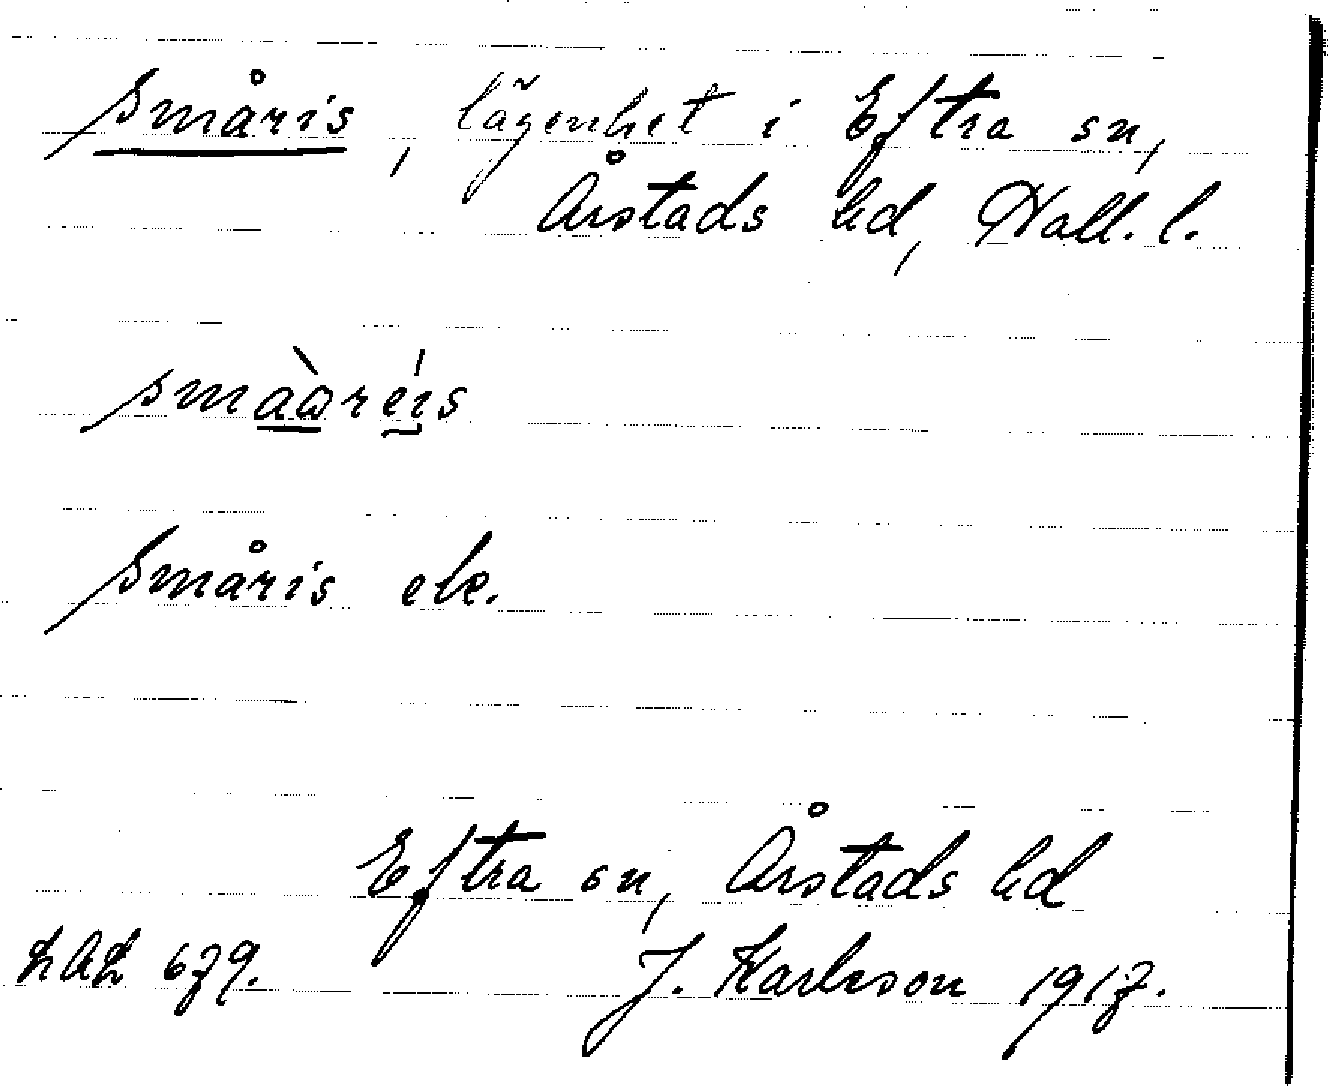 Småris, lägenhet i Eftra sn,
Årstads hd, Hall. l.
smaàréis
Småris ek.
Eftra sn, Årstads hd
LAL 679. J. Karlsson 1917.